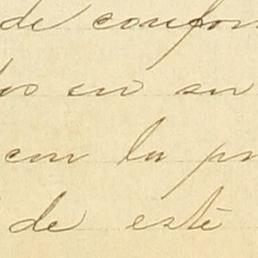 de confor
en su
con la pr
de este